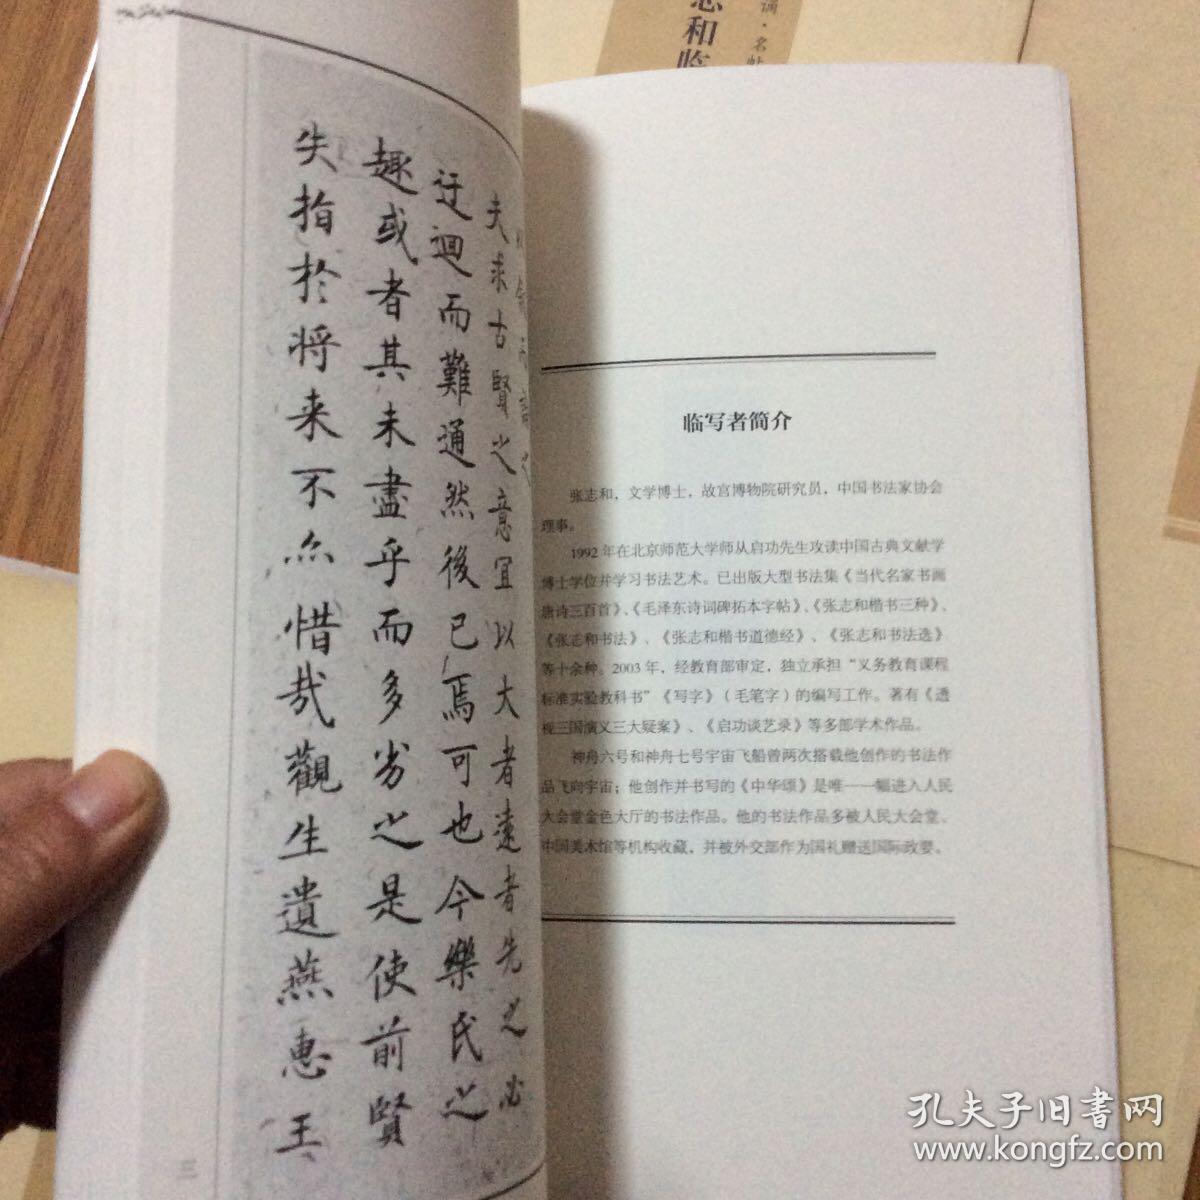 夫求古賢之意宜以大者遠者先之必
迂迴而難通然後已焉可也今樂氏之
趣或者其未盡乎而多劣之是使前賢
失指於将来不亦惜哉觀生遺燕惠王
三
和临
调·名帖
临写者简介
张志和，文学博士，故宫博物院研究员，中国书法家协会
理事。
1992 年在北京师范大学师从启功先生攻读中国古典文献学
博士学位并学习书法艺术。已出版大型书法集《当代名家书画
唐诗三百首》、《毛泽东诗词碑拓本字帖》、《张志和楷书三种》、
《张志和书法》、《张志和楷书道德经》、《张志和书法选》
等十余种。2003 年，经教育部审定，独立承担“义务教育课程
标准实验教科书”《写字》（毛笔字）的编写工作。著有《透
视三国演义三大疑案》、《启功谈艺录》等多部学术作品。
神舟六号和神舟七号宇宙飞船曾两次搭载他创作的书法作
品飞向宇宙；他创作并书写的《中华颂》是唯一一幅进入人民
大会堂金色大厅的书法作品。他的书法作品多被人民大会堂、
中国美术馆等机构收藏，并被外交部作为国礼赠送国际政要。
孔夫子旧書网
www.kongfz.com